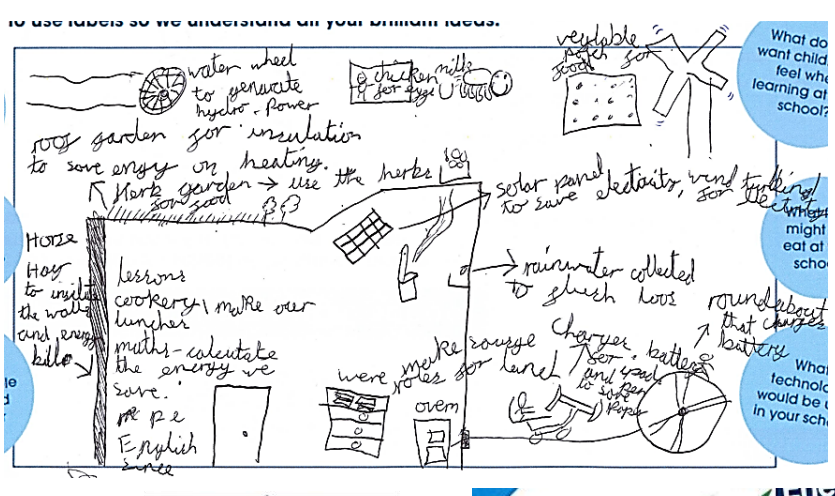 to use labels so we understand all your brilliant ideas.
water wheel
to genarate
hydro-power
chicken
for eggs
milk
vegtable
patch for
food
What do
want child
feel whe
learning at
school?
roof garden for insulation
to save enrgy on heating.
Herb garden → use the herbs
for food
solar panel
to save electricity, wind turbine
for
might
eat at
schoo
Horse
Hay
to insilate
the walls
and energy
bills
rainwater collected
to flush loos
lessons
cookery \ make our
lunches
maths-calculate
the energy we
save.
p e
English
were make
rolls for lunch
oven
charges battery
for ipad
and
to save
paper
roundabout
that charges
battery
What
technolo
would be u
in your scho